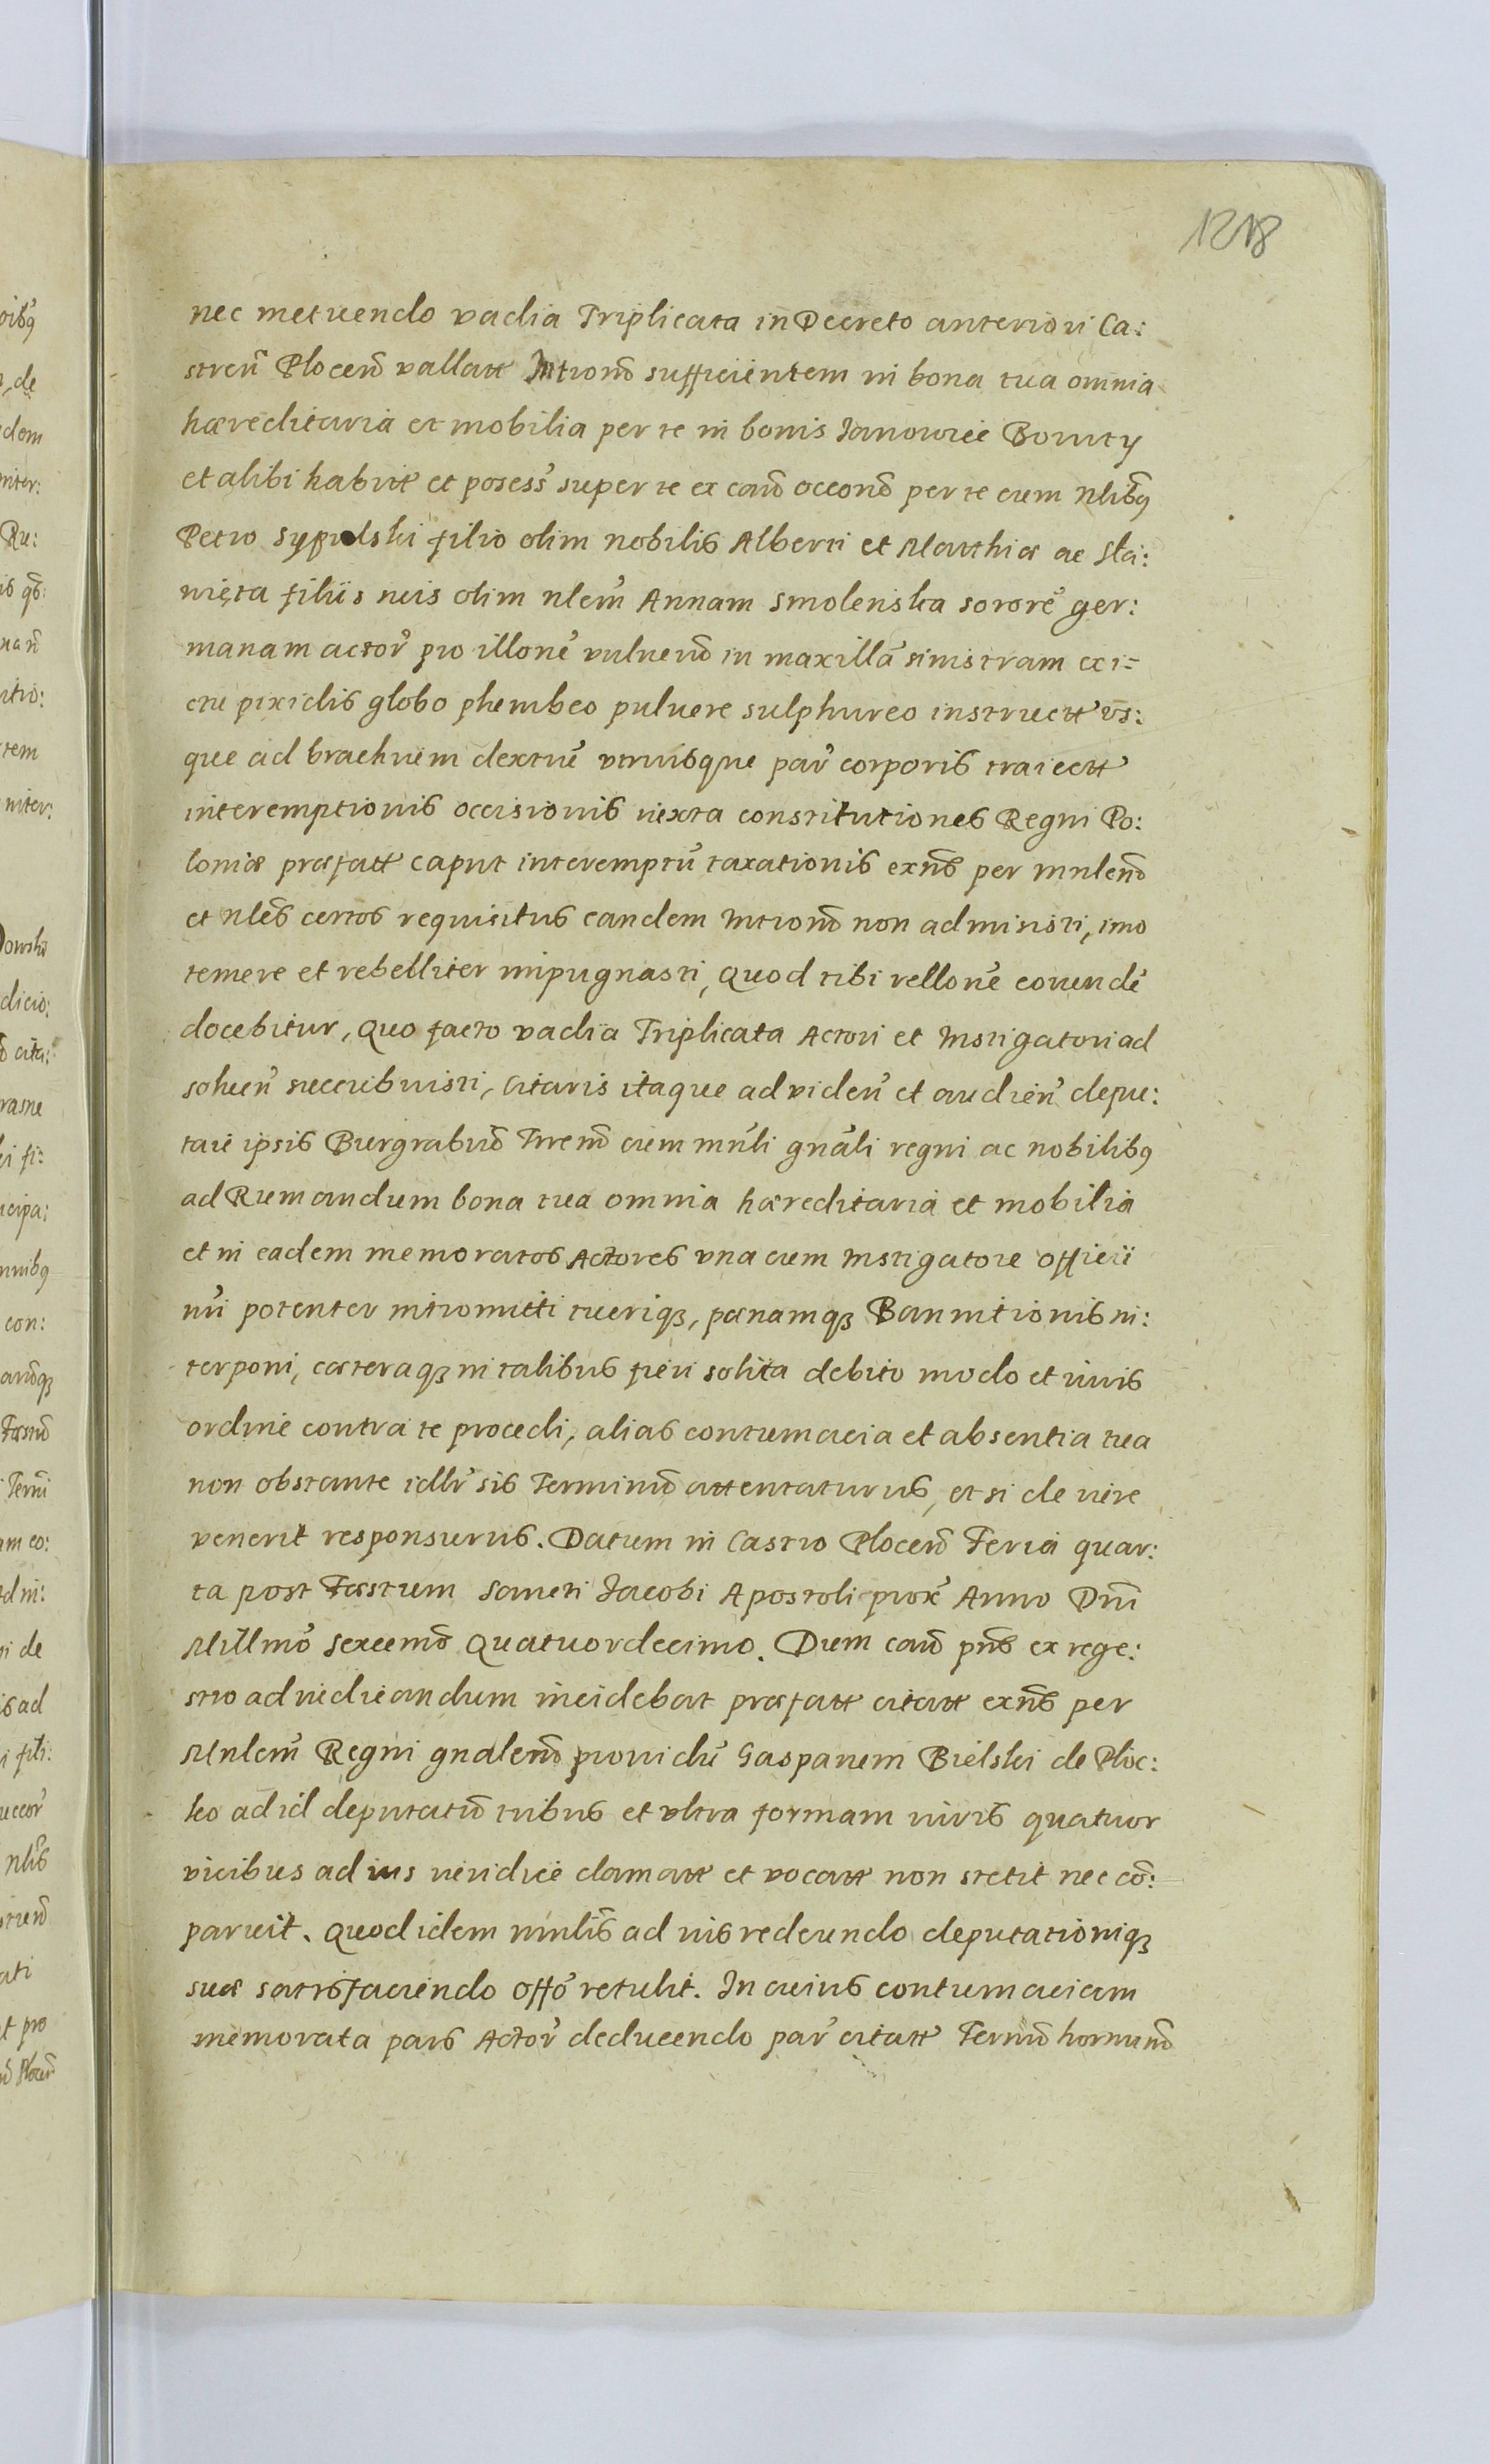 1218
nec metuendo vadia Triplicata in Decreto anteriori Ca:
stren̄ Plocen̄ vallatt Introm̄ sufficientem in bona tua omnia
hæreditaria et mobilia per te in bonis Janowiec Boruty
et alibi habitt et posess̄ super te ex cau͠ occon͠ per te cum nlib͠q
Petro Sypulski filio olim nobilis Alberti et Mathia ac Sta:
nięta filiis suis olim nlem̄ Annam Smolenska sororē ger:
manam actor̄ pro illonē vulner͠ in maxillā sinistram exi=
ctu pixidis globo plumbeo puluere sulphureo instructt vs:
que ad brachium dextrū utriusque par̄ corporis traiectt
interemptionis occisionis iuxta constitutiones Regni Po:
loniæ præfatt caput interemptū taxationis exn͠s per mnlen͠
et nles͠ certos requisitus eandem Introm͠ non admisisti, imo
temere et rebelliter impugnasti, quod tibi rellonē eorundē
docebitur, Quo facto vadia Triplicata Actori et Instigatori ad
soluen̄ succubuisti, Citaris itaque ad viden̄ et audien̄ depu:
tari ipsis Burgrabiu͠ Trrem͠ cum mn̄li gnāli regni ac nobilibq
ad Rumandum bona tua omnia hæreditaria et mobilia
et in eadem memoratos Actores vna cum Instigatore officii
nri potenter intromitti tueriqꝫ, pœnamqꝫ Bannitionis in:
terponi, cæteraqꝫ in talibus fieri solita debito modo et iuris
ordine contra te procedi, alias contumacia et absentia tua
non obstante idllr̄ sis Terminu͠ attentaturus, et si de iure
venerit responsurus. Datum in Castro Plocen͠ Feria quar:
ta post Fæstum Sancti Jacobi Apostoli prox̄ Anno Dn̄i
Millmō sexcemō Quatuordecimo. Dum cau͠ pn͠s ex rege:
stro ad iudicandum incidebat præfatt citatt exn͠s per
Mnlem̄ Regni gnalem͠ prouidū Gasparem Bielski de Ploc:
ko ad id deputatu͠ tribus et vltra formam iuris quatuor
vicibus ad ius iuridice clamatt et vocatt non stetit nec cō:
paruit. Quod idem mnlis͠ ad nis redeundo deputationiqꝫ
suæ satisfaciendo offō retulit. In cuius contumaciam
memorata pars Actor̄ deducendo par̄ citatt Termu͠